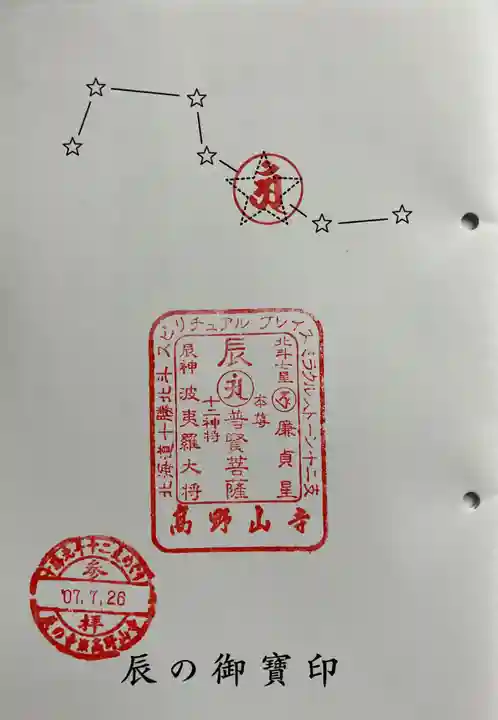 スピリチュアル プレイス
ミラクルヘトーン十二支
北海道十勝北斗
辰
北斗七星
廉貞星
本尊
普賢菩薩
十二神将
辰神 波夷羅大将
高野山寺
参
'07.7.26
拝
辰の御寶印